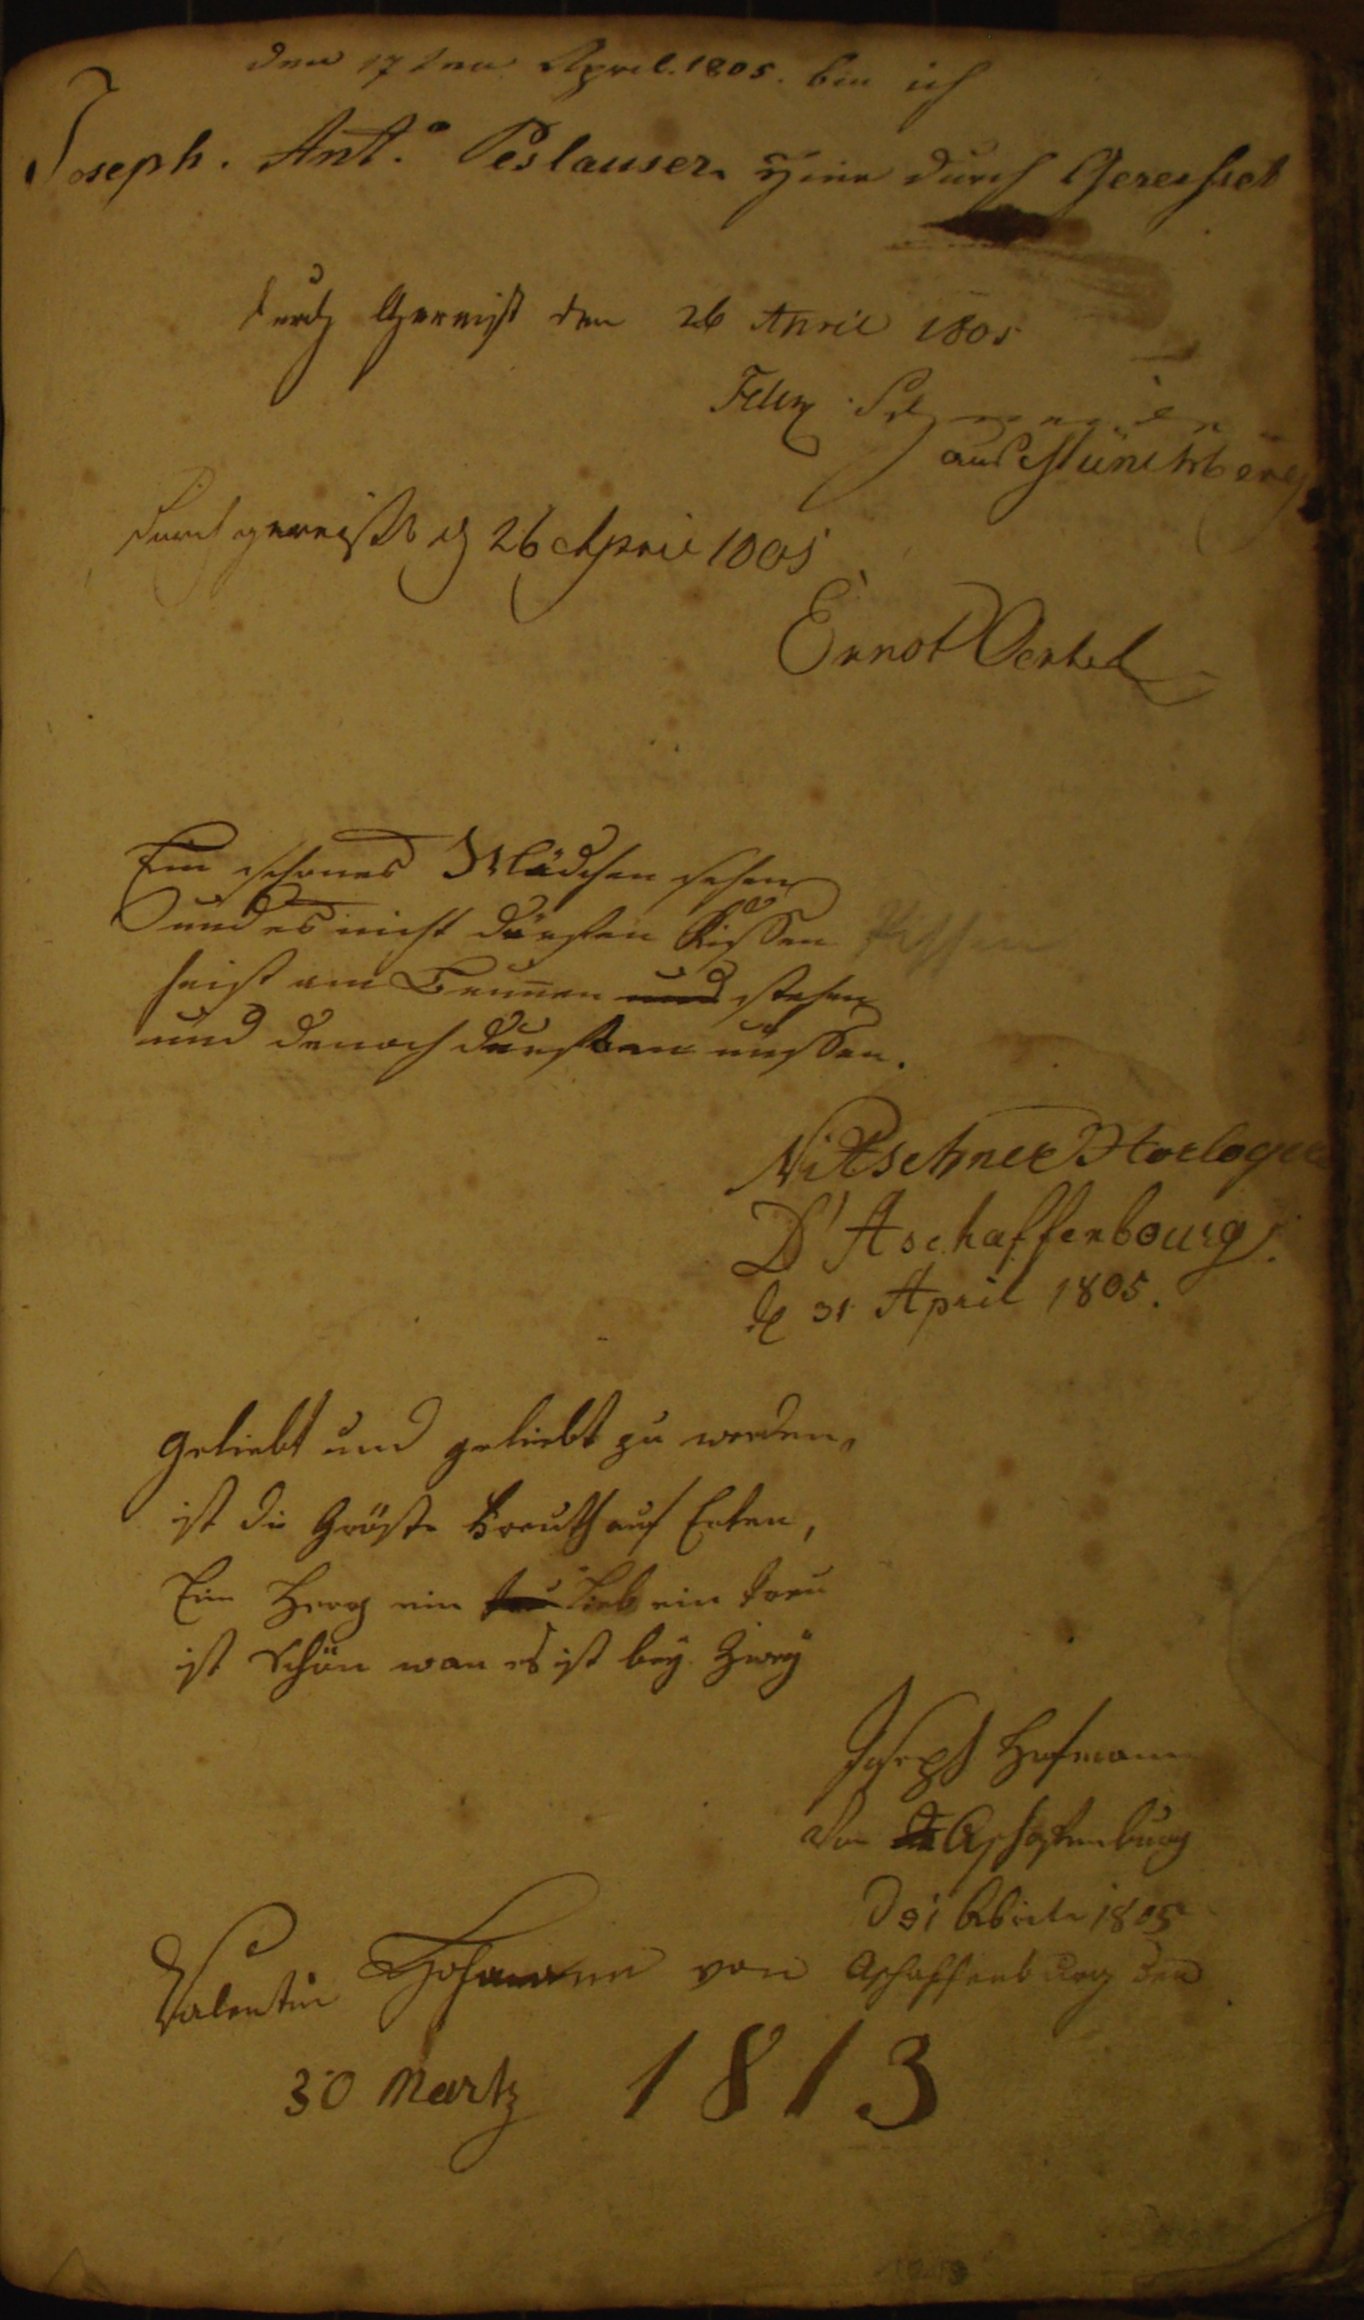 den 17ten April. 1805. bin ich
Joseph. Ant.º Peslauser. Hier durch Gereißet
durch Gereist den 26 April 1805
Felix
aus Münchberg
durch gereißt d 26 Aprill 1805
Ernst Oertel
Ein schönes Mädchen sehen
und es nicht dürfen Kissen Kissen
heist am Brunnen und stehen
und denoch dursten müssen.
Nitzschner Horloger
D'Aschaffenbourg.
d 31 April 1805.
Geliebt und geliebt zu werden,
ist die Gröste Freuth auf Erten,
Ein Herz ein Lieb ein treu
ist Schön wan es ist bey Zwey
Joseph Hofmann
Von Aschaffenburg
D 31 Abrill 1805
Valentin Hofmann von Aschaffenburg den
30 Martz 1813